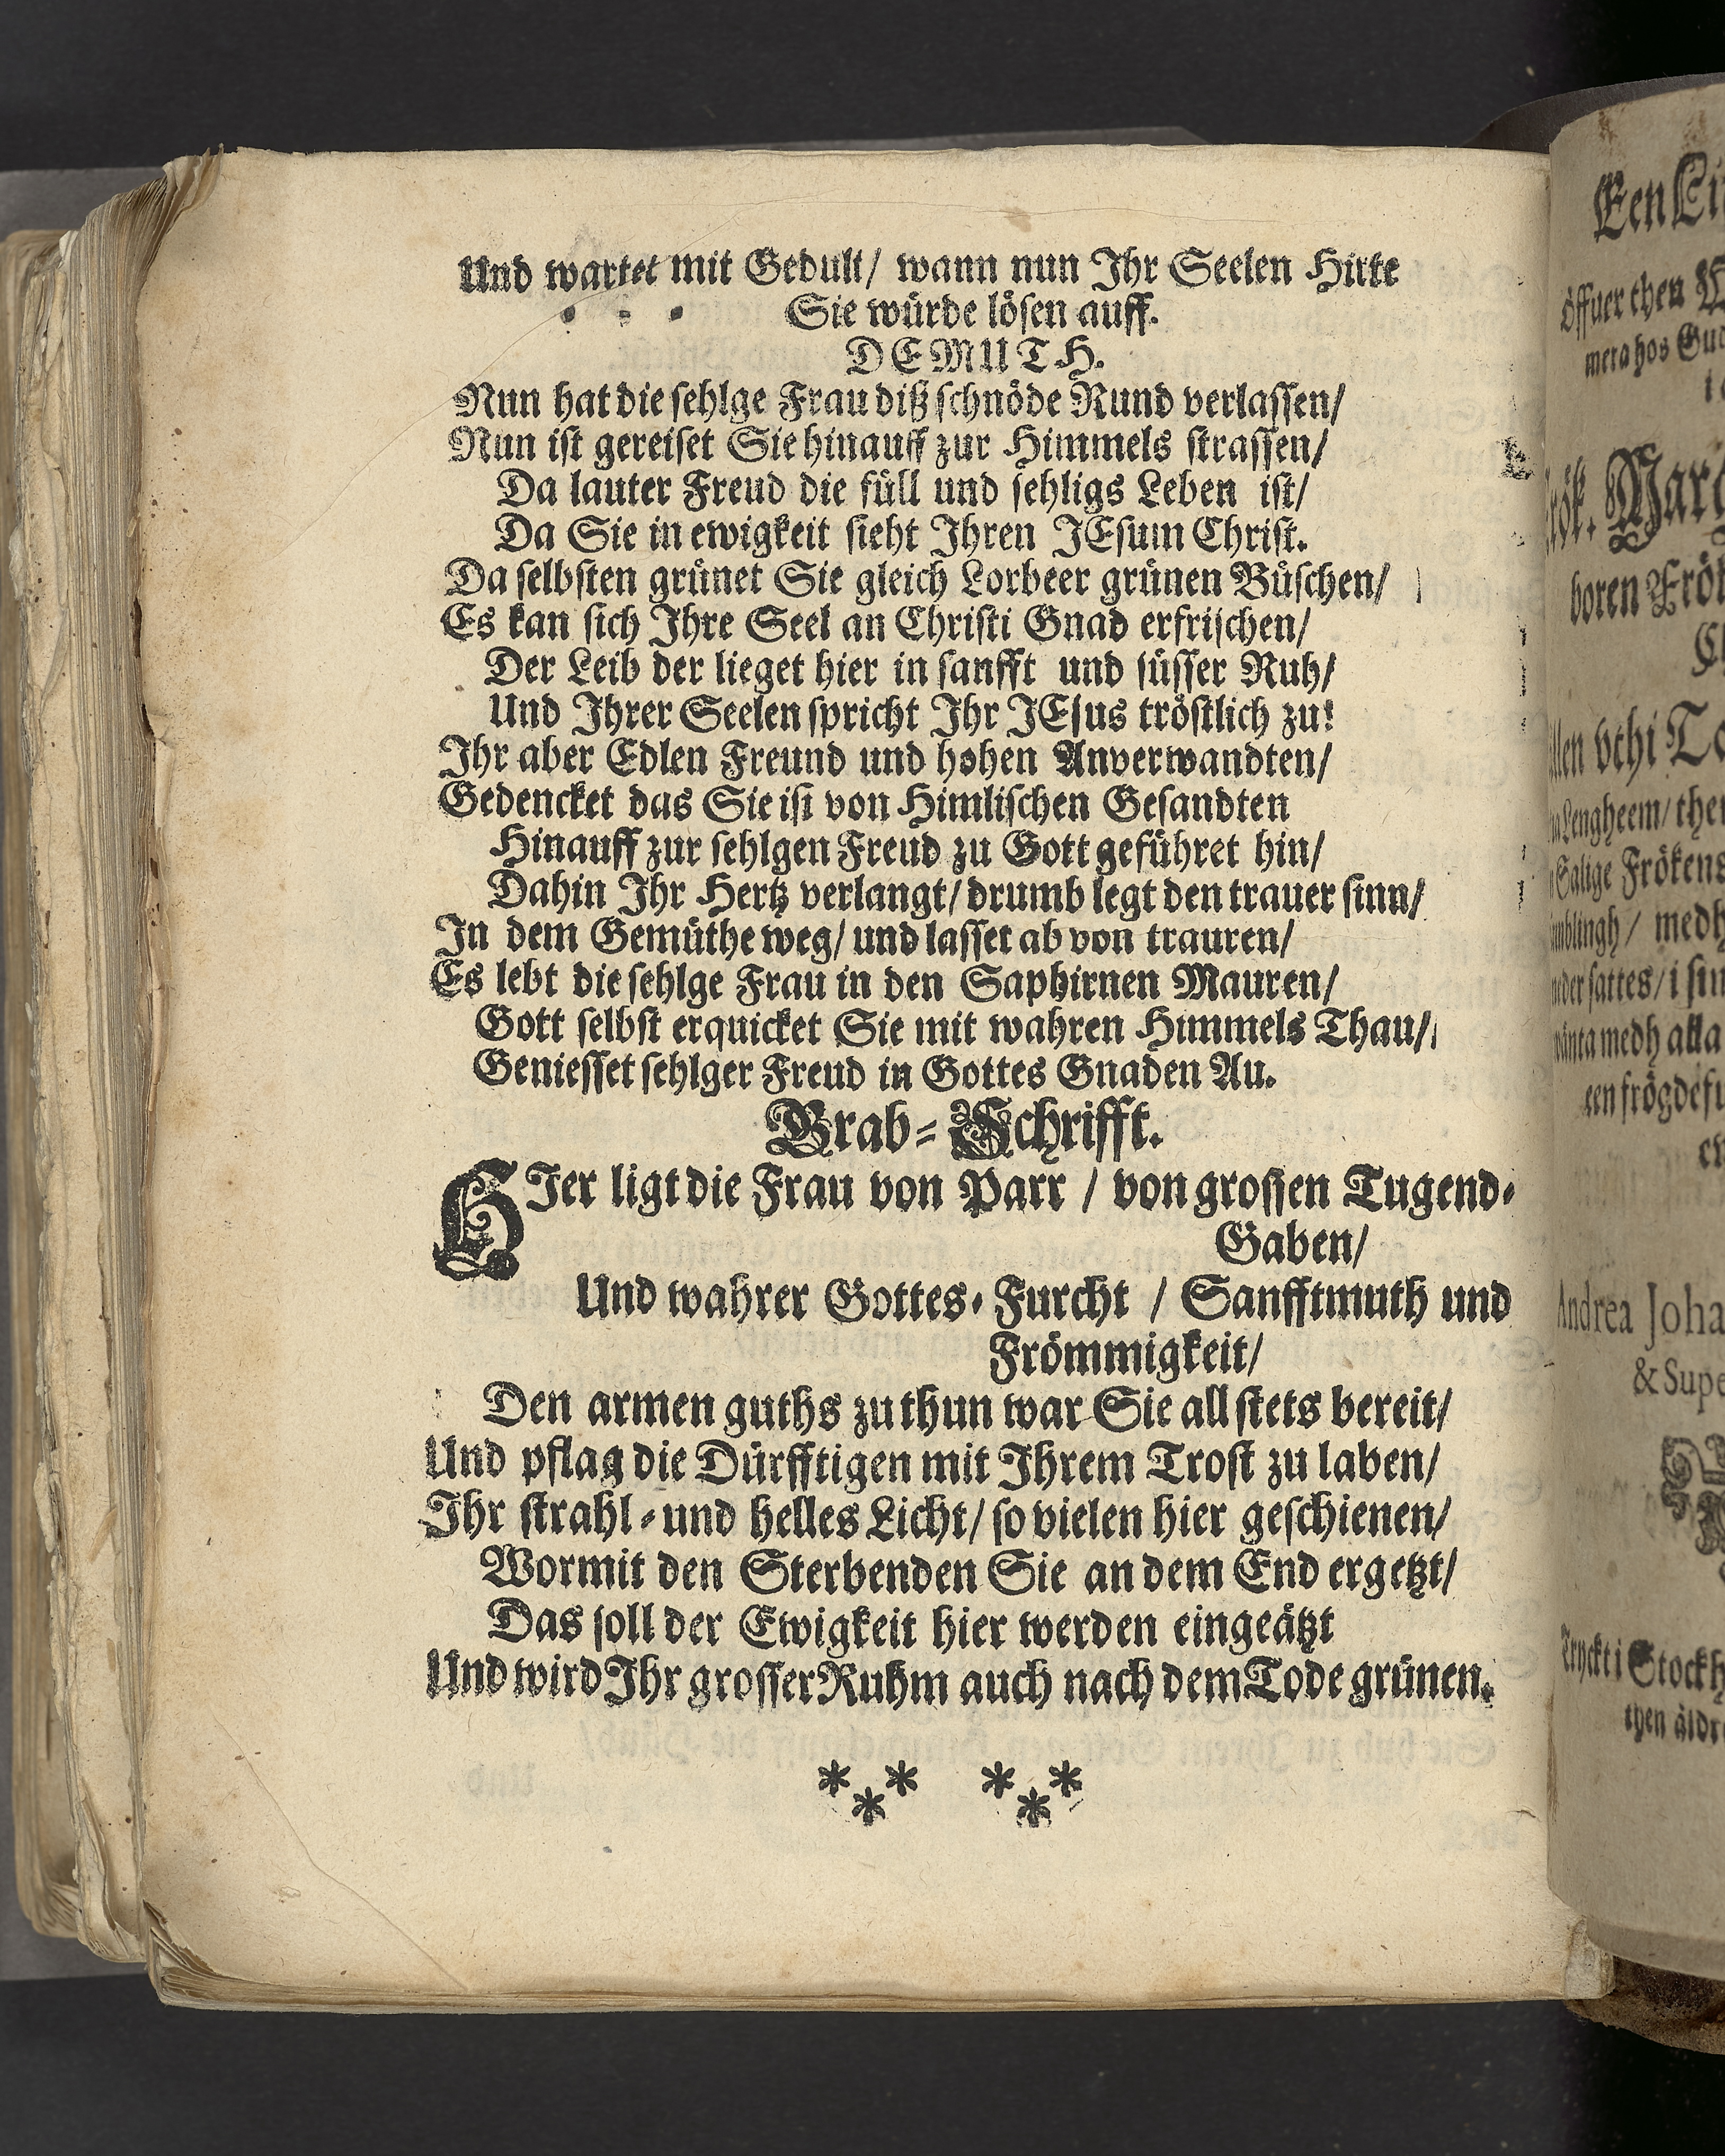 Und wartet mit Gedult/ wann nun Ihr Seelen Hirte
Sie würde lösen auff.
DEMUTH.
Nun hat die sehlge Frau diß schnöde Rund verlassen/
Nun ist gereiset Sie hinauff zur Himmels strassen/
Da lauter Freud die füll und sehligs Leben ist/
Da Sie in ewigkeit sieht Ihren JEsum Christ.
Da selbsten grünet Sie gleich Lorbeer grünen Büschen/
Es kan sich Ihre Seel an Christi Gnad erfrischen/
Der Leib der lieget hier in sanfft und süsser Ruh/
Und Ihrer Seelen spricht Ihr JEsus tröstlich zu!
Ihr aber Edlen Freund und hohen Anverwandten/
Gedencket das Sie ist von Himlischen Gesandten
Hinauff zur sehlgen Freud zu Gott geführet hin/
Dahin Ihr Hertz verlangt/ drumb legt den trauer sinn/
In dem Gemüthe weg/ und lasset ab von trauren/
Es lebt die sehlge Frau in den Saphirnen Mauren/
Gott selbst erquicket Sie mit wahren Himmels Thau/
Geniesset sehlger Freud in Gottes Gnaden Au.
Grab-Schrifft.
HIer ligt die Frau von Parr / von grossen Tugend-
Gaben/
Und wahrer Gottes-Furcht / Sanfftmuth und
Frömmigkeit/
Den armen guths zu thun war Sie all stets bereit/
Und pflag die Dürfftigen mit Ihrem Trost zu laben/
Ihr strahl-und helles Licht/ so vielen hier geschienen/
Wormit den Sterbenden Sie an dem End ergetzt/
Das soll der Ewigkeit hier werden eingeätzt
Und wird Ihr grosser Ruhm auch nach dem Tode grünen.
* * * * * *
Een
öffuer then
mera hos
boren
vthi
Lengheem/
Salige Frökens
medh
sattes/ i
medh alla
Andrea
&
i
then